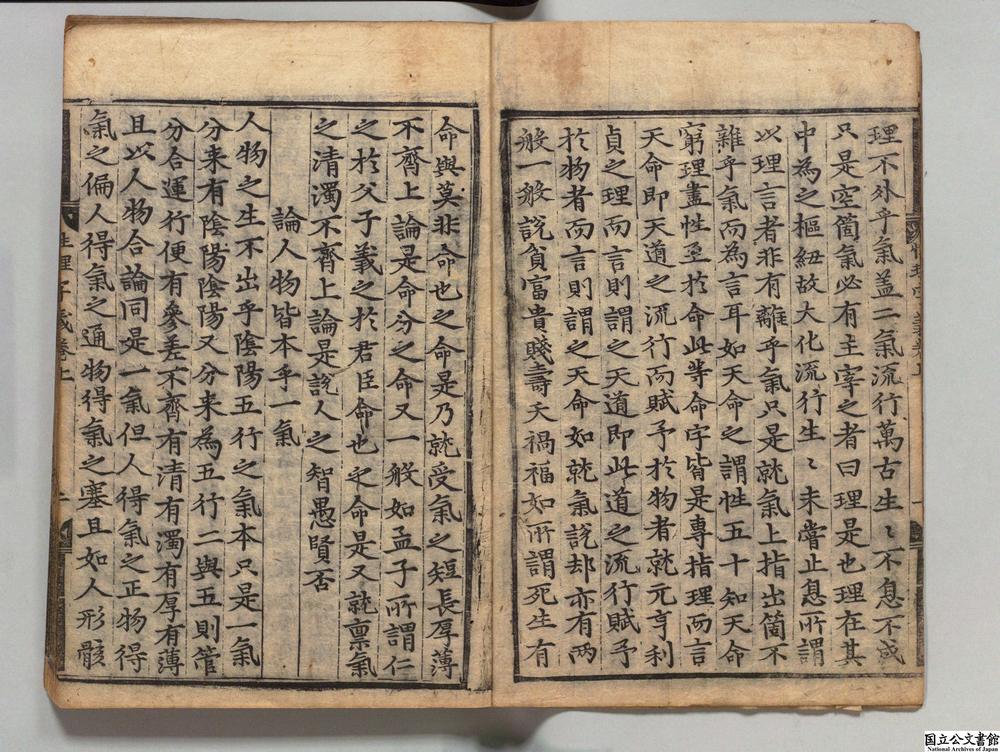 理不外乎氣盖二氣流行萬古生〻不息不成
只是空箇氣必有主宰之者曰理是也理在其
中為之樞紐故大化流行生〻未嘗止息所謂
以理言者非有離乎氣只是就氣上指出箇不
雜乎氣而為言耳如天命之謂性五十知天命
窮理盡性至於命此等命字皆是專指理而言
天命即天道之流行而賦予於物者就元亨利
貞之理而言則謂之天道即此道之流行賦予
於物者而言則謂之天命如就氣說却亦有兩
般一般說貧富貴賤壽夭禍福如所謂死生有
命與莫非命也之命是乃就受氣之短長厚薄
不齊上論是命分之命又一般如孟子所謂仁
之於父子義之於君臣命也之命是又就禀氣
之清濁不齊上論是說人之智愚賢否
論人物皆本乎一氣
人物之生不出乎陰陽五行之氣本只是一氣
分来有陰陽陰陽又分来為五行二與五則管
分合運行便有參差不齊有清有濁有厚有薄
且以人物合論同是一氣但人得氣之正物得
氣之偏人得氣之通物得氣之塞且如人形骸
性理字義卷上
二
国立公文書館
National Archives of Japan